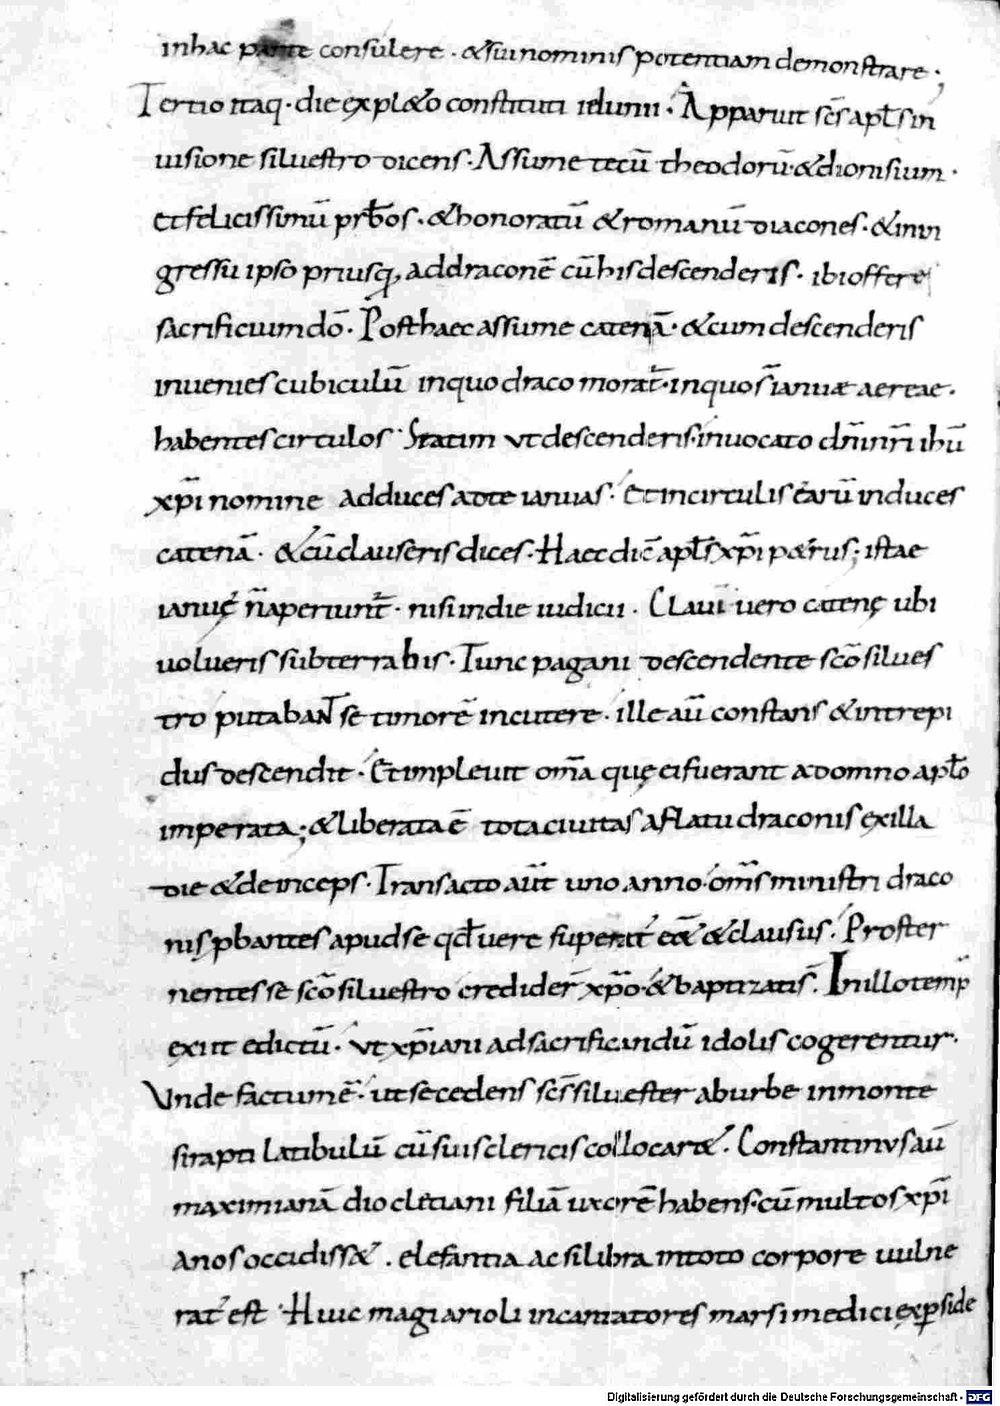 inhac parte consulere . &sui nominis potentiam demonstrare ;
Tertio itaq · die expl&o constituti idunii · Apparuit scs apls in
uisione siluestro dicens · Assume tecū theodorū · & dionisium ·
Et felicissimū prb̄os · & honoratū & romanū diacones · & inin
gressu ipso priusq; addraconē cū his descenderis · ibi offere
sacrificium dō · Post haec assume catenā · & cum descenderis
inuenies cubiculū inquo draco morat̄ · inquo s̄ ianuæ aereae ·
habentes circulos · Statim ut descenderis · inuocato dn̄i nr̄i ihū
xp̄i nomine adduces adte ianuas · Et incirculis earū induces
catenā · & cū clauseris dices · Haec dic̄ apl̄s xp̄i p&rus ; istae
ianuę n̄ aperiunt̄ · nisi indie iudicii · Claui uero catenę ubi
uolueris subterrabis · Tunc pagani descendente scō silues
tro putaban̄T se timorē incutere · ille aū constans & intrepi
dus descendit · Et impleuit om̄a quę ei fuerant adomno aplo
imperata ; & liberata ē tota ciuitas aflatu draconis exilla
die & deinceps · Transacto aūt uno anno · om̄s ministri draco
nis pbantes apud se qd uere superat̄ e& & clausus · Proster
nentes se scō siluestro credider̄ xp̄o · & baptizati s̄ · In illo temp̄
exiit edictū · ut xp̄iani ad sacrificandū idolis cogerentur ·
Unde factum ē · ut secedens scs̄ siluester aburbe in monte
sirapti latibulū cū suis clericis collocar& · Constantinus aū
maximianā diocletiani filiā uxorē habens · cū multos xp̄i
anos occidiss& . elefantia ac si libra intoto corpore uulne
rat̄ est Huic magi arioli incantatores marsi medici exp side
Digitalisierung gefördert durch die Deutsche Forschungsgemeinschaft - DFG